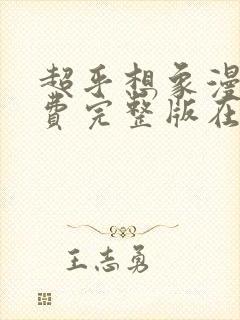 超乎想象漫
费完整版在
王志勇